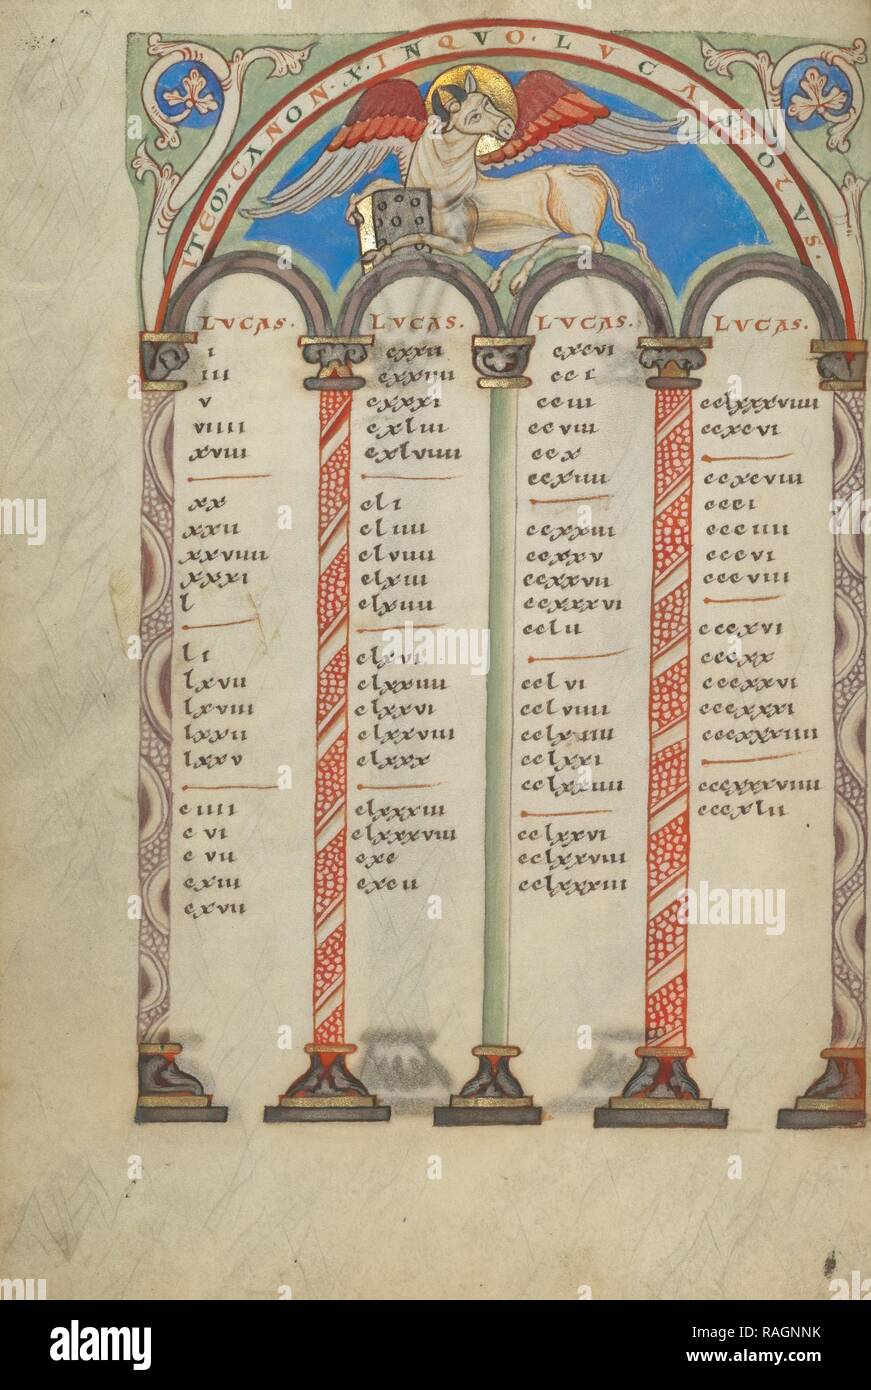 ITEM·CANON·X·INQVO·LVCASSOLVS·
LVCAS·
i
iii
v
viiii
xviii
xx
xxii
xxviiii
xxxi
l
li
lxvii
lxviii
lxxii
lxxv
ciiii
cvi
cvii
cxiii
cxvii
LVCAS·
cxxii
cxxiiii
cxxxi
cxliii
cxlviiii
cli
cliiii
clviiii
clxiii
clxiiii
clxvi
clxxiiii
clxxvi
clxxviii
clxxx
clxxxiii
clxxxviii
cxc
cxcii
LVCAS·
cxcvi
cci
cciii
ccviii
ccx
ccxiiii
ccxxiii
ccxxv
ccxxvii
ccxxxvi
cclii
cclvi
cclviiii
cclxxi
cclxxiiii
cclxxvi
cclxxviii
cclxxxiii
LVCAS·
cclxxxviiii
ccxcvi
ccxcviii
ccci
ccciiii
cccvi
cccviii
cccxvi
cccxx
cccxxvi
cccxxxi
cccxxxiiii
cccxxxviiii
cccxlii
alamy
Image ID: RAGNNK
www.alamy.com